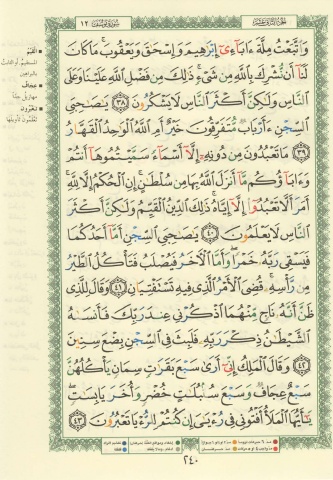 الجزء الثاني عشر
سورة يوسف ١٢
وَٱتَّبَعْتُ مِلَّةَ ءَابَآءِىٓ إِبْرَٰهِيمَ وَإِسْحَٰقَ وَيَعْقُوبَ ۚ مَا كَانَ
لَنَآ أَن نُّشْرِكَ بِٱللَّهِ مِن شَىْءٍ ۚ ذَٰلِكَ مِن فَضْلِ ٱللَّهِ عَلَيْنَا وَعَلَى
ٱلنَّاسِ وَلَٰكِنَّ أَكْثَرَ ٱلنَّاسِ لَا يَشْكُرُونَ ٣٨ يَٰصَٰحِبَىِ
ٱلسِّجْنِ ءَأَرْبَابٌ مُّتَفَرِّقُونَ خَيْرٌ أَمِ ٱللَّهُ ٱلْوَٰحِدُ ٱلْقَهَّارُ
٣٩ مَا تَعْبُدُونَ مِن دُونِهِۦٓ إِلَّآ أَسْمَآءً سَمَّيْتُمُوهَآ أَنتُمْ
وَءَابَآؤُكُم مَّآ أَنزَلَ ٱللَّهُ بِهَا مِن سُلْطَٰنٍ ۚ إِنِ ٱلْحُكْمُ إِلَّا لِلَّهِ ۚ
أَمَرَ أَلَّا تَعْبُدُوٓا۟ إِلَّآ إِيَّاهُ ۚ ذَٰلِكَ ٱلدِّينُ ٱلْقَيِّمُ وَلَٰكِنَّ أَكْثَرَ
ٱلنَّاسِ لَا يَعْلَمُونَ ٤٠ يَٰصَٰحِبَىِ ٱلسِّجْنِ أَمَّآ أَحَدُكُمَا
فَيَسْقِى رَبَّهُۥ خَمْرًا ۖ وَأَمَّا ٱلْءَاخَرُ فَيُصْلَبُ فَتَأْكُلُ ٱلطَّيْرُ
مِن رَّأْسِهِۦ ۚ قُضِىَ ٱلْأَمْرُ ٱلَّذِى فِيهِ تَسْتَفْتِيَانِ ٤١ وَقَالَ لِلَّذِى
ظَنَّ أَنَّهُۥ نَاجٍ مِّنْهُمَا ٱذْكُرْنِى عِندَ رَبِّكَ فَأَنسَىٰهُ
ٱلشَّيْطَٰنُ ذِكْرَ رَبِّهِۦ فَلَبِثَ فِى ٱلسِّجْنِ بِضْعَ سِنِينَ
٤٢ وَقَالَ ٱلْمَلِكُ إِنِّىٓ أَرَىٰ سَبْعَ بَقَرَٰتٍ سِمَانٍ يَأْكُلُهُنَّ
سَبْعٌ عِجَافٌ وَسَبْعَ سُنۢبُلَٰتٍ خُضْرٍ وَأُخَرَ يَابِسَٰتٍ ۖ
يَٰٓأَيُّهَا ٱلْمَلَأُ أَفْتُونِى فِى رُءْيَٰىَ إِن كُنتُمْ لِلرُّءْيَا تَعْبُرُونَ ٤٣
القيم
المستقيم أو الثابت
بالبراهين
عجاف
مهازيل جداً
تعبرون
تعلمون تأويلها
٢٤٠